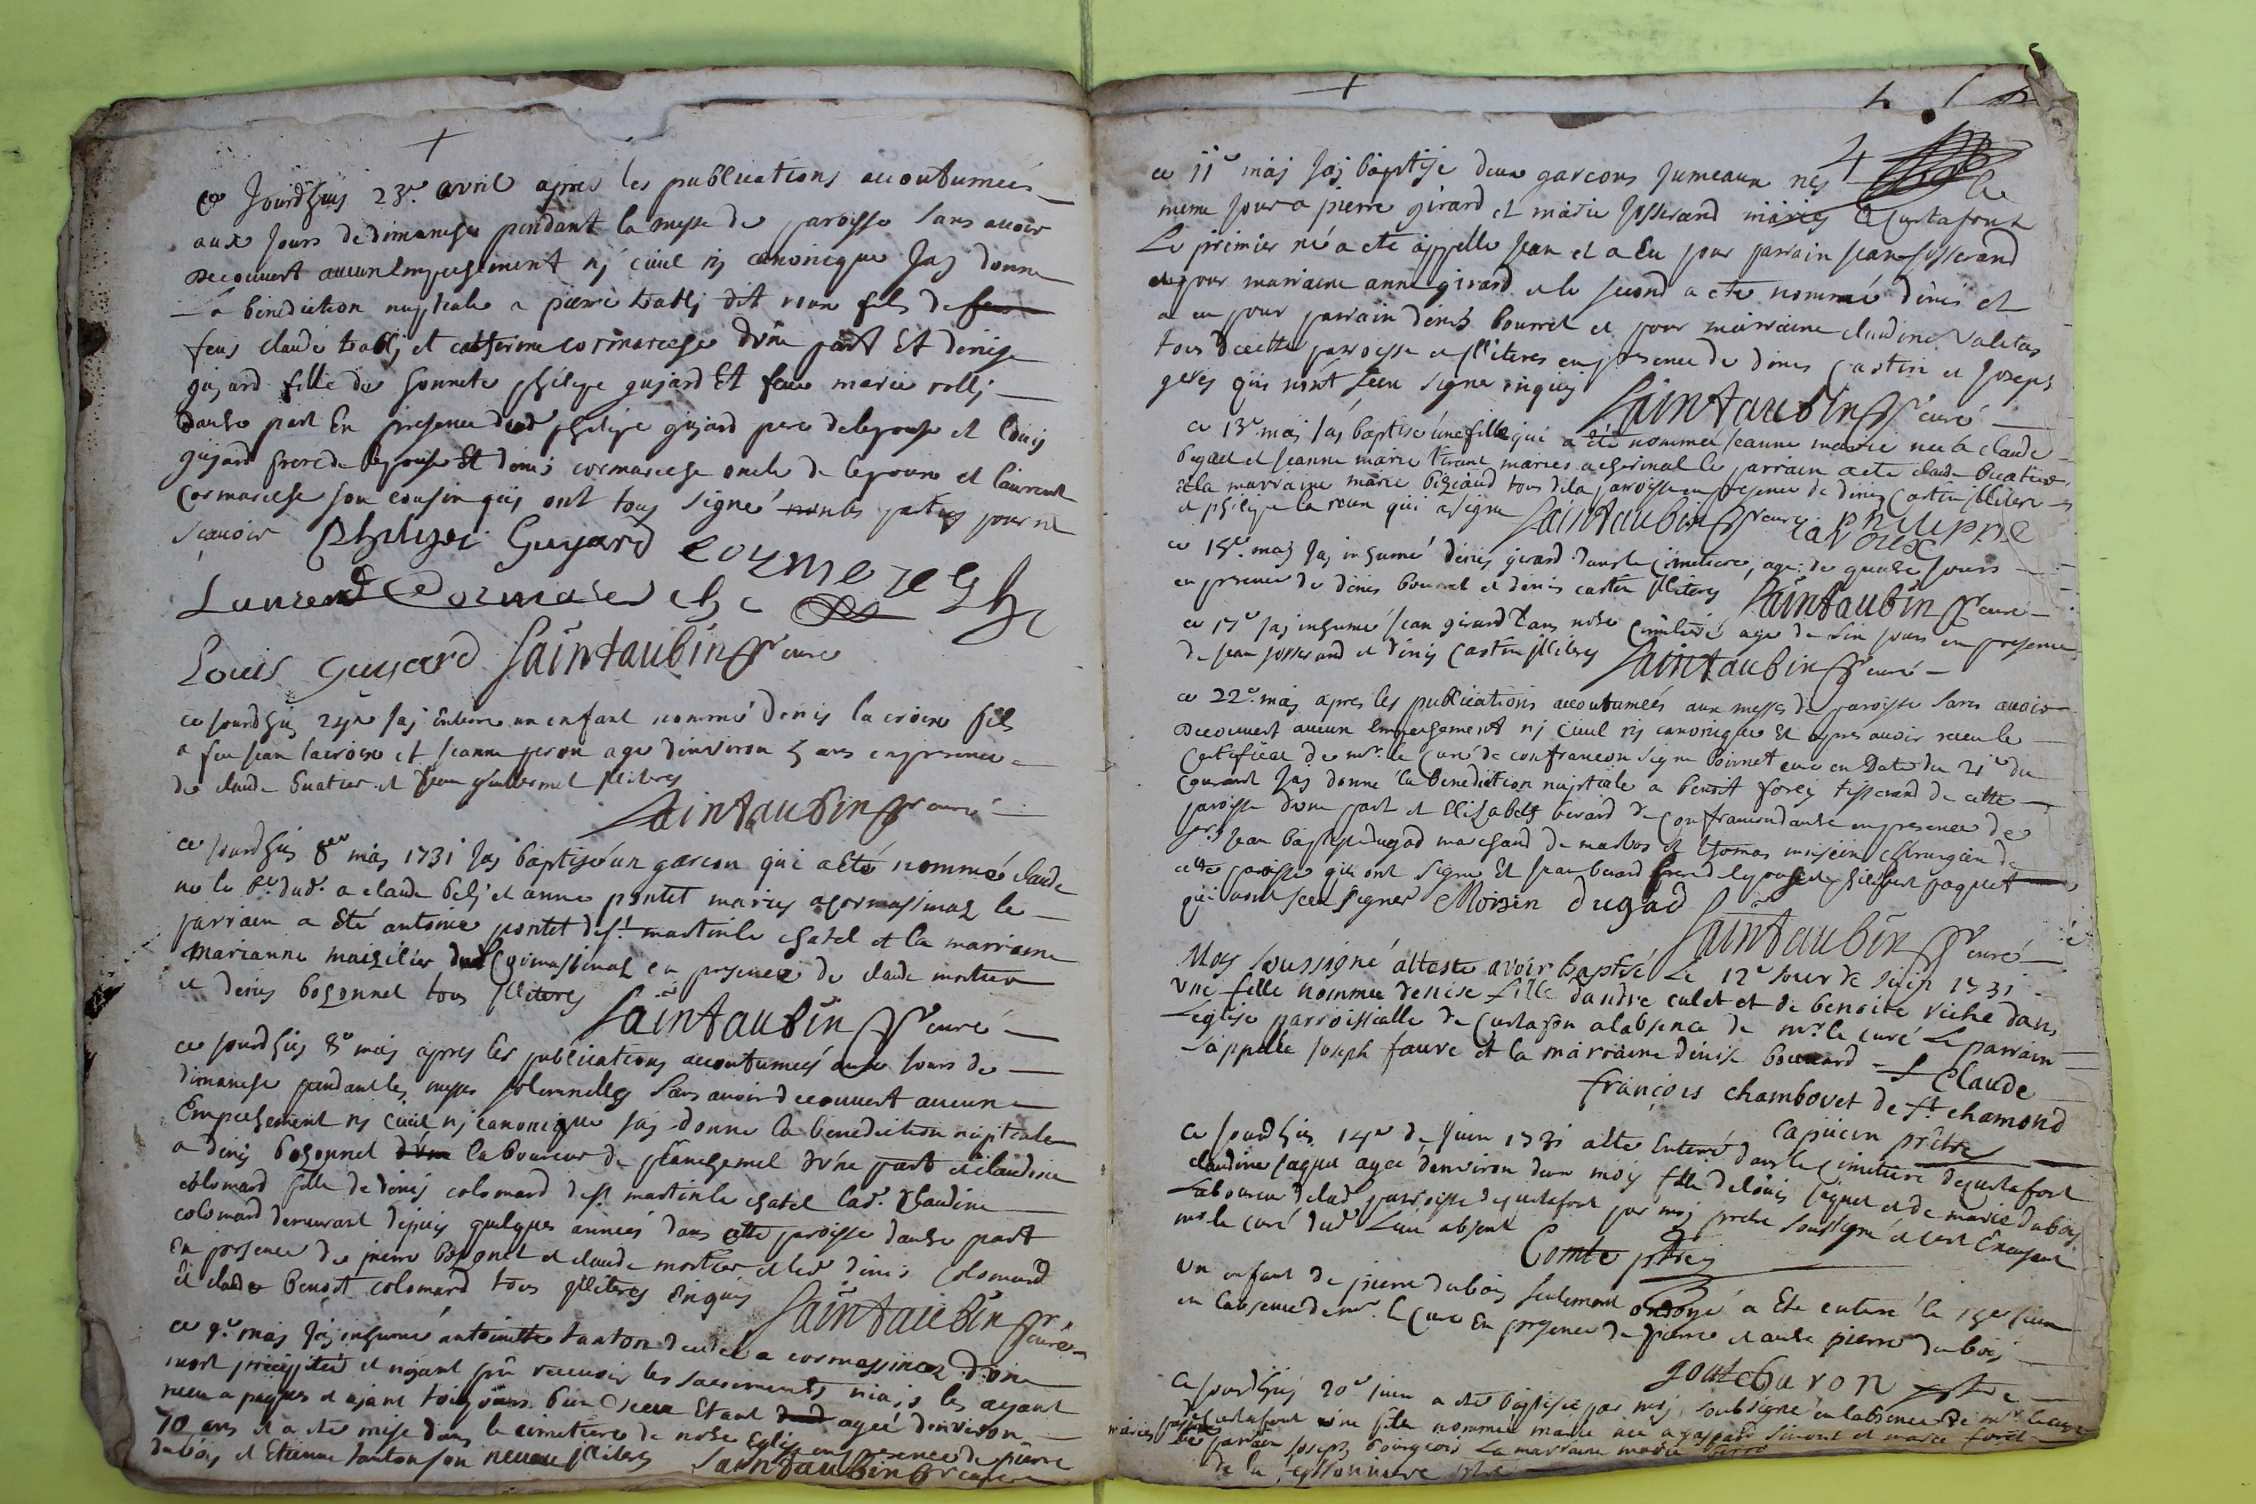 ce Jourdhuy 23e avril apres les publications accoutumees
aux jours de dimanche pendant la messe de paroisse sans avoir
decouvert aucun empechement nj civil nj canonique Jaj donne
la benediction nuptiale a pierre dit fils de
feus claude et catherine cormareche dvne part Et denise
gujard fille de honnete philipe gujard Et feue marie
dautre part En presence dud philipe gujard pere de lepouse et louis
gujard frere de lepouse Et denis cormareche oncle de lepoux et laurent
Cormareche son cousin quj ont tous signé non les parties pour ne
scavoir Philipe Guyard cormareche
Laurend Cormareche
Louis Guyard Saintaubin curé
ce jourdhuj 24e Jaj Enterre un enfant nommé denis la croix fils
a feu jean lacroix et jeanne peron age denviron 5 ans en presence
de claude buatier et illiteres
Saintaubin curé
ce jourdhuy 8e maj 1731 Jaj baptisé un garcon qui a eté nommé claude
ne le dud. a claude et anne pontet mariés a cormassimaz le
parrain a Eté antoine pontet de st martin le chatel et la marraine
marianne de Cormassimaz en presence de claude mortier
et denis bozonnet tous illiteres
Saintaubin curé
ce jourdhuj 8e maj apres les publications accoutumeés aux jours de
dimanche pendant les messes solemnelles sans avoir decouvert aucun
Empechement nj civil nj canonique Jaj donne la benediction nuptiale
a denis bozonnet laboureur de planchemel dvne part et claudine
colomard fille de denis colomard de st martin le chatel lad. Claudine
colomard demeurant depuis quelques années dans cette paroisse dautre part
En presence de pierre bozonet et claude mortier et led denis Colomard
Et claude benoit colomard tous illiteres Enquis Saintaubin curé
ce 9e maj Jaj inhumé antoinette tanton decedee a cormassimaz dvne
mort precipitée et naiant pu recevoir les sacrements mais les ayant
receu a paques et ajant toujours bien vecu Etant agee denviron
70 ans et a ete mise dans le cimetiere de notre Eglise en presence de pierre
dubois et Etienne tanton son neveu illiteres Saintaubin curé
4
ce 11e maj Jaj baptise deux garcons jumeaux nes le
meme jour a pierre girard et marie josserand mariés a Curtafond
Le premier né a ete appelle jean et a Eu pour parrain jean josserand
et pour marraine anne girard et le second a ete nommé denis et
a eu pour parrain denis bourret et pour marraine claudine
tous de cette paroisse et illiteres en presence de denis Castin et Joseph
quj nont sceu signer enquis Saintaubin curé
ce 13e maj Jaj baptisé une fille qui a Eté nommée jeanne marie nee a claude
et jeanne marie mariés a le parrain a ete claude buatier
Et la marraine marie tous de la paroisse en presence de denis Castin illitere
et philipe la roux qui a signe Saintaubin curé Philippe La Roux
ce 15e maj Jaj inhumé denis girard dans le cimetiere, age de quatre jours
en presence de denis bourret et denis castin illiteres Saintaubin curé
ce 17e Jaj inhumé jean girard dans notre Cimetiere age de six jours en presence
de jean josserand et denis Castin illiteres Saintaubin curé
ce 22e maj apres les publications accoutumeés aux messes de paroisse sans avoir
decouvert aucun Empechement nj civil nj canonique Et apres avoir receu le
Certificat de mr. le Curé de confrancon signe curé en Date du 21e du
Courant Jaj donne la benediction nuptiale a benoit forey tisserand de cette
paroisse dune part et Elizabeth berard de Confrancon dautre en presence de
sr. Jean baptiste dugad marchand de et thomas chirurgien de
cette paroisse quj ont signe Et jean berard frere de lepouse et philibert paquet
quj nont sceu signer Moisin dugad
Saintaubin curé
Moy soussigné atteste avoir baptisé Le 12e jour de juin 1731
vne fille nommee denise fille dandre culet et de benoite riche dans
Leglise parroissialle de Curtafon a labsence de mr. le curé Le parrain
sappelle joseph favre et la marraine denise bouvard f Claude
françois chambovet de st. chamond
capucin prêtre
Ce jourdhuy 14e de Juin 1731 a Ete Enterré dans le Cimetiere de curtafont
claudine jaquet agee denviron deux mois fille de louis jaquet et de marie dubois
Laboureur de lad parroisse de curtafont par moj pretre soussigné a cet Enterrement
mr le curé dud Lieu absent Comte ptre
Vn enfant de pierre dubois seulement ondoyé a Ete enterré le 15e juin
en labsence de mr. le Curé En presence de pierre et autre pierre dubois
goutcharon ptre
Ce jourdhuj 20e juin a ete baptisée par moj soubsigné en labsence de mr. le curé
de Curtafont une fille nommée marie née a gaspard et marie foret
mariés le parrain joseph bourgeois la marraine marie
de la ptre